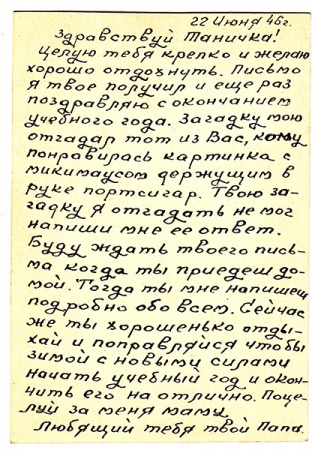 22 Июня 46г.
Здравствуй Таничка!
Целую тебя крепко и желаю
хорошо отдохнуть. Письмо
я твое получил и еще раз
поздравляю с окончанием
учебного года. Загадку мою
отгадал тот из Вас, кому
понравилась картинка с
микимаусом держущим в
руке портсигар. Твою за-
гадку я отгадать не мог
напиши мне ее ответ.
Буду ждать твоего пись-
ма когда ты приедеш до-
мой. Тогда ты мне напишеш
подробно обо всем. Сейчас
же ты хорошенько отды-
хай и поправляйся чтобы
зимой с новыми силами
начать учебный год и окон-
чить его на отлично. Поце-
луй за меня маму
Любящий тебя твой Папа.